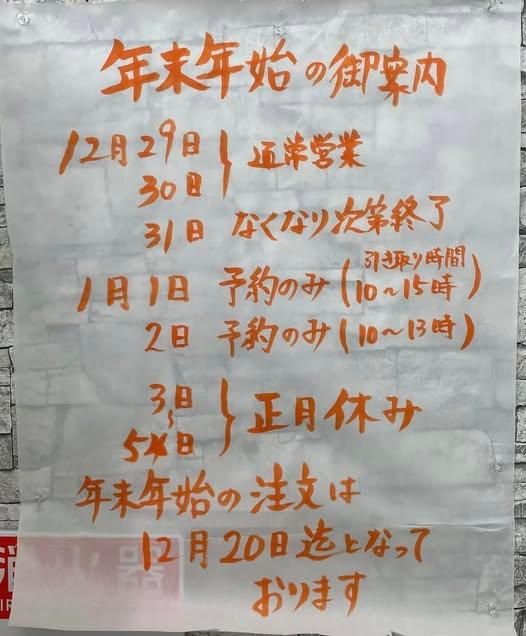 年末年始の御案内
12月29日
30日
通常営業
31日 なくなり次第終了
1月1日 予約のみ(引き取り時間 10〜15時)
2日 予約のみ(10〜13時)
3日
〜
5日
正月休み
年末年始の注文は
12月20日迄となって
おります
消火器